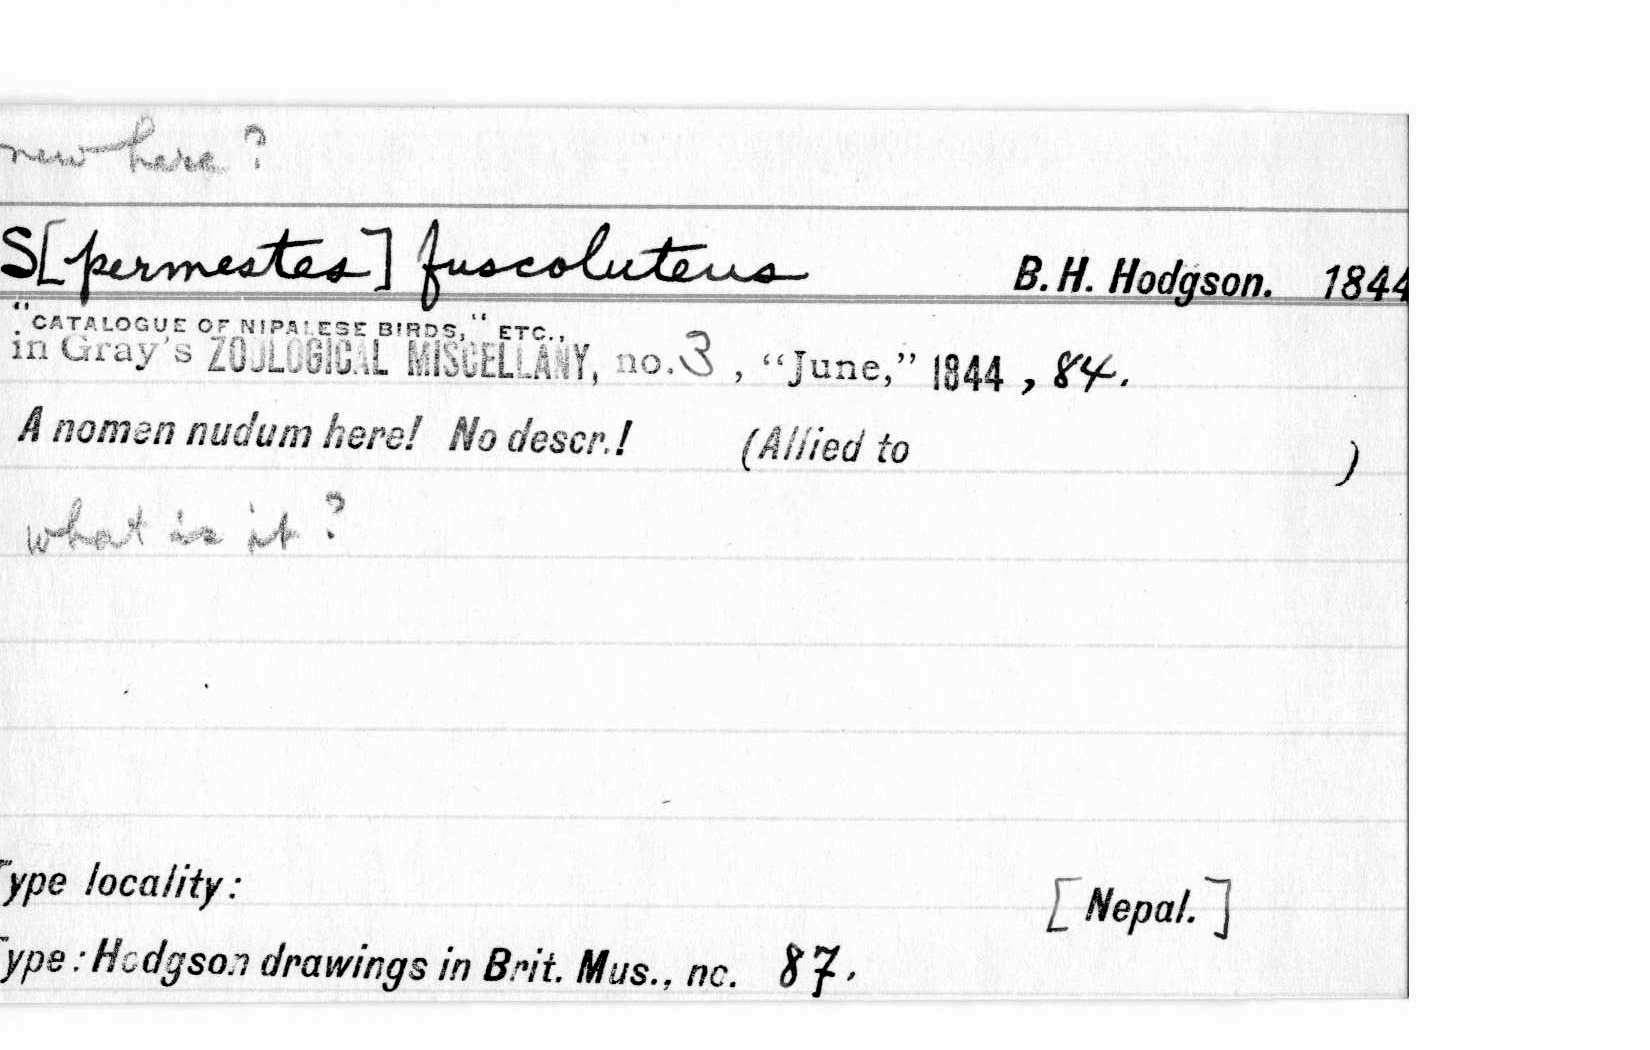 new here?
S[permestes] fuscoluteus B. H. Hodgson. 1844
"CATALOGUE OF NIPALESE BIRDS," ETC.,
in Gray's ZOOLOGICAL MISCELLANY, no. 3, "June," 1844, 84.
A nomen nudum here! No descr.! (Allied to )
what is it?
Type locality: [Nepal.]
Type: Hodgson drawings in Brit. Mus., no. 87.